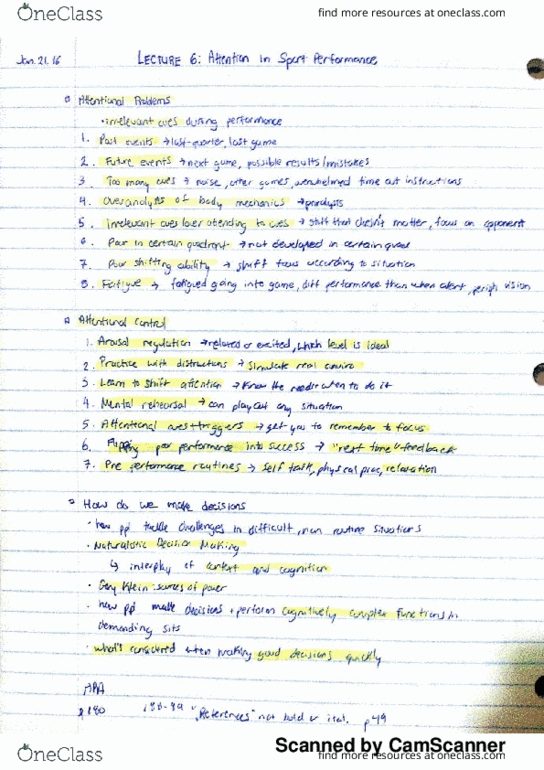 OneClass
find more resources at oneclass.com
Jan. 21. 16
LECTURE 6: Attention in Sport Performance
Attentional Problems
• irrelevant cues during performance
1. Past events → last-quarter, last game
2. Future events → next game, possible results/mistakes
3. Too many cues → noise, other games, overwhelmed time out instructions
4. Overanalysis of body mechanics → paralysis
5. Irrelevant cues (over attending to cues → stuff that doesn't matter, focus on opponent
6. Poor in certain quadrant → not developed in certain quad
7. Poor shifting ability → shift focus according to situation
8. Fatigue → fatigued going into game, diff performance than when alert, periph vision
Attentional Control
1. Arousal regulation → relaxed or excited, which level is ideal
2. Practice with distractions → simulate real enviro
3. Learn to shift attention → know the needs when to do it
4. Mental rehearsal → can play out any situation
5. Attentional cues + triggers → get you to remember to focus
6. Flipping poor performance into success → "next time" feedback
7. Pre performance routines → self talk, physical prac, relaxation
How do we make decisions
• how ppl tackle challenges in difficult, non routine situations
• Naturalistic Decision Making
↳ interplay of context and cognition
• Gary Klein: sources of power
• how ppl make decisions + perform cognitively complex functions in
demanding sits
• what's considered when making good decisions quickly
APA
"References" not bold or ital. p49
Scanned by CamScanner
OneClass
find more resources at oneclass.com